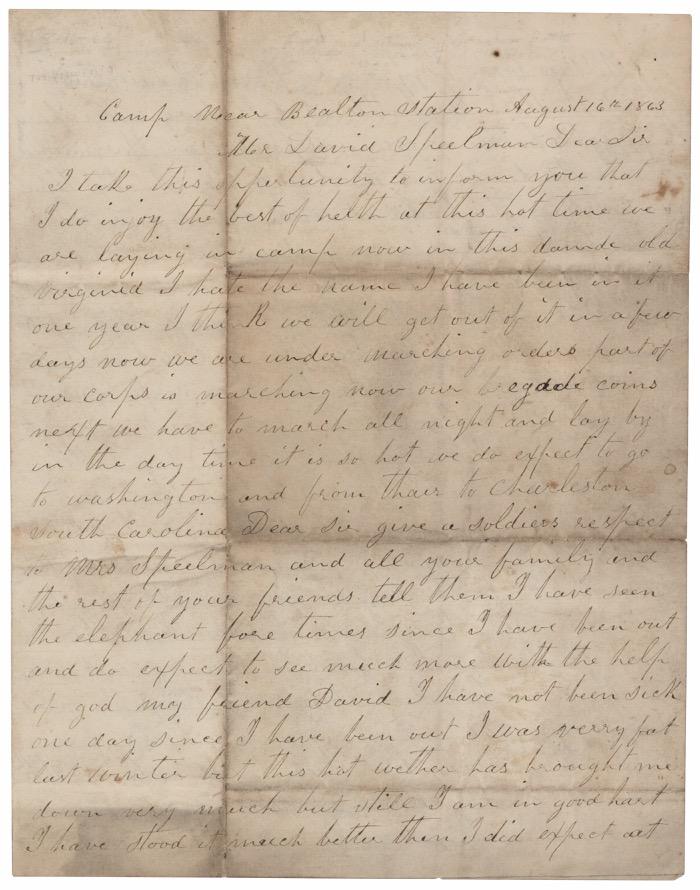 Camp Near Bealton Station August 16th 1863
Mr David Speelman Dear Sir
I take this opportunity to inform you that
I do injoy the best of helth at this hot time we
are laying in camp now in this damde old
virginea I hate the name I have been in it
one year I think we will get out of it in a few
days now we are under marching orders part of
our corps is marching now our bregade coms
next we have to march all night and lay by
in the day time it is so hot we do expect to go
to washington and from thair to Charleston
South Carolina Dear Sir give a soldiers respect
to Mrs Speelman and all your family and
the rest of your friends tell them I have seen
the elephant fore times since I have been out
and do expect to see much more with the help
of god my friend David I have not been sick
one day since I have been out I was verry fat
last winter but this hot wether has brought me
down very much but still I am in good hart
I have stood it much better then I did expect at